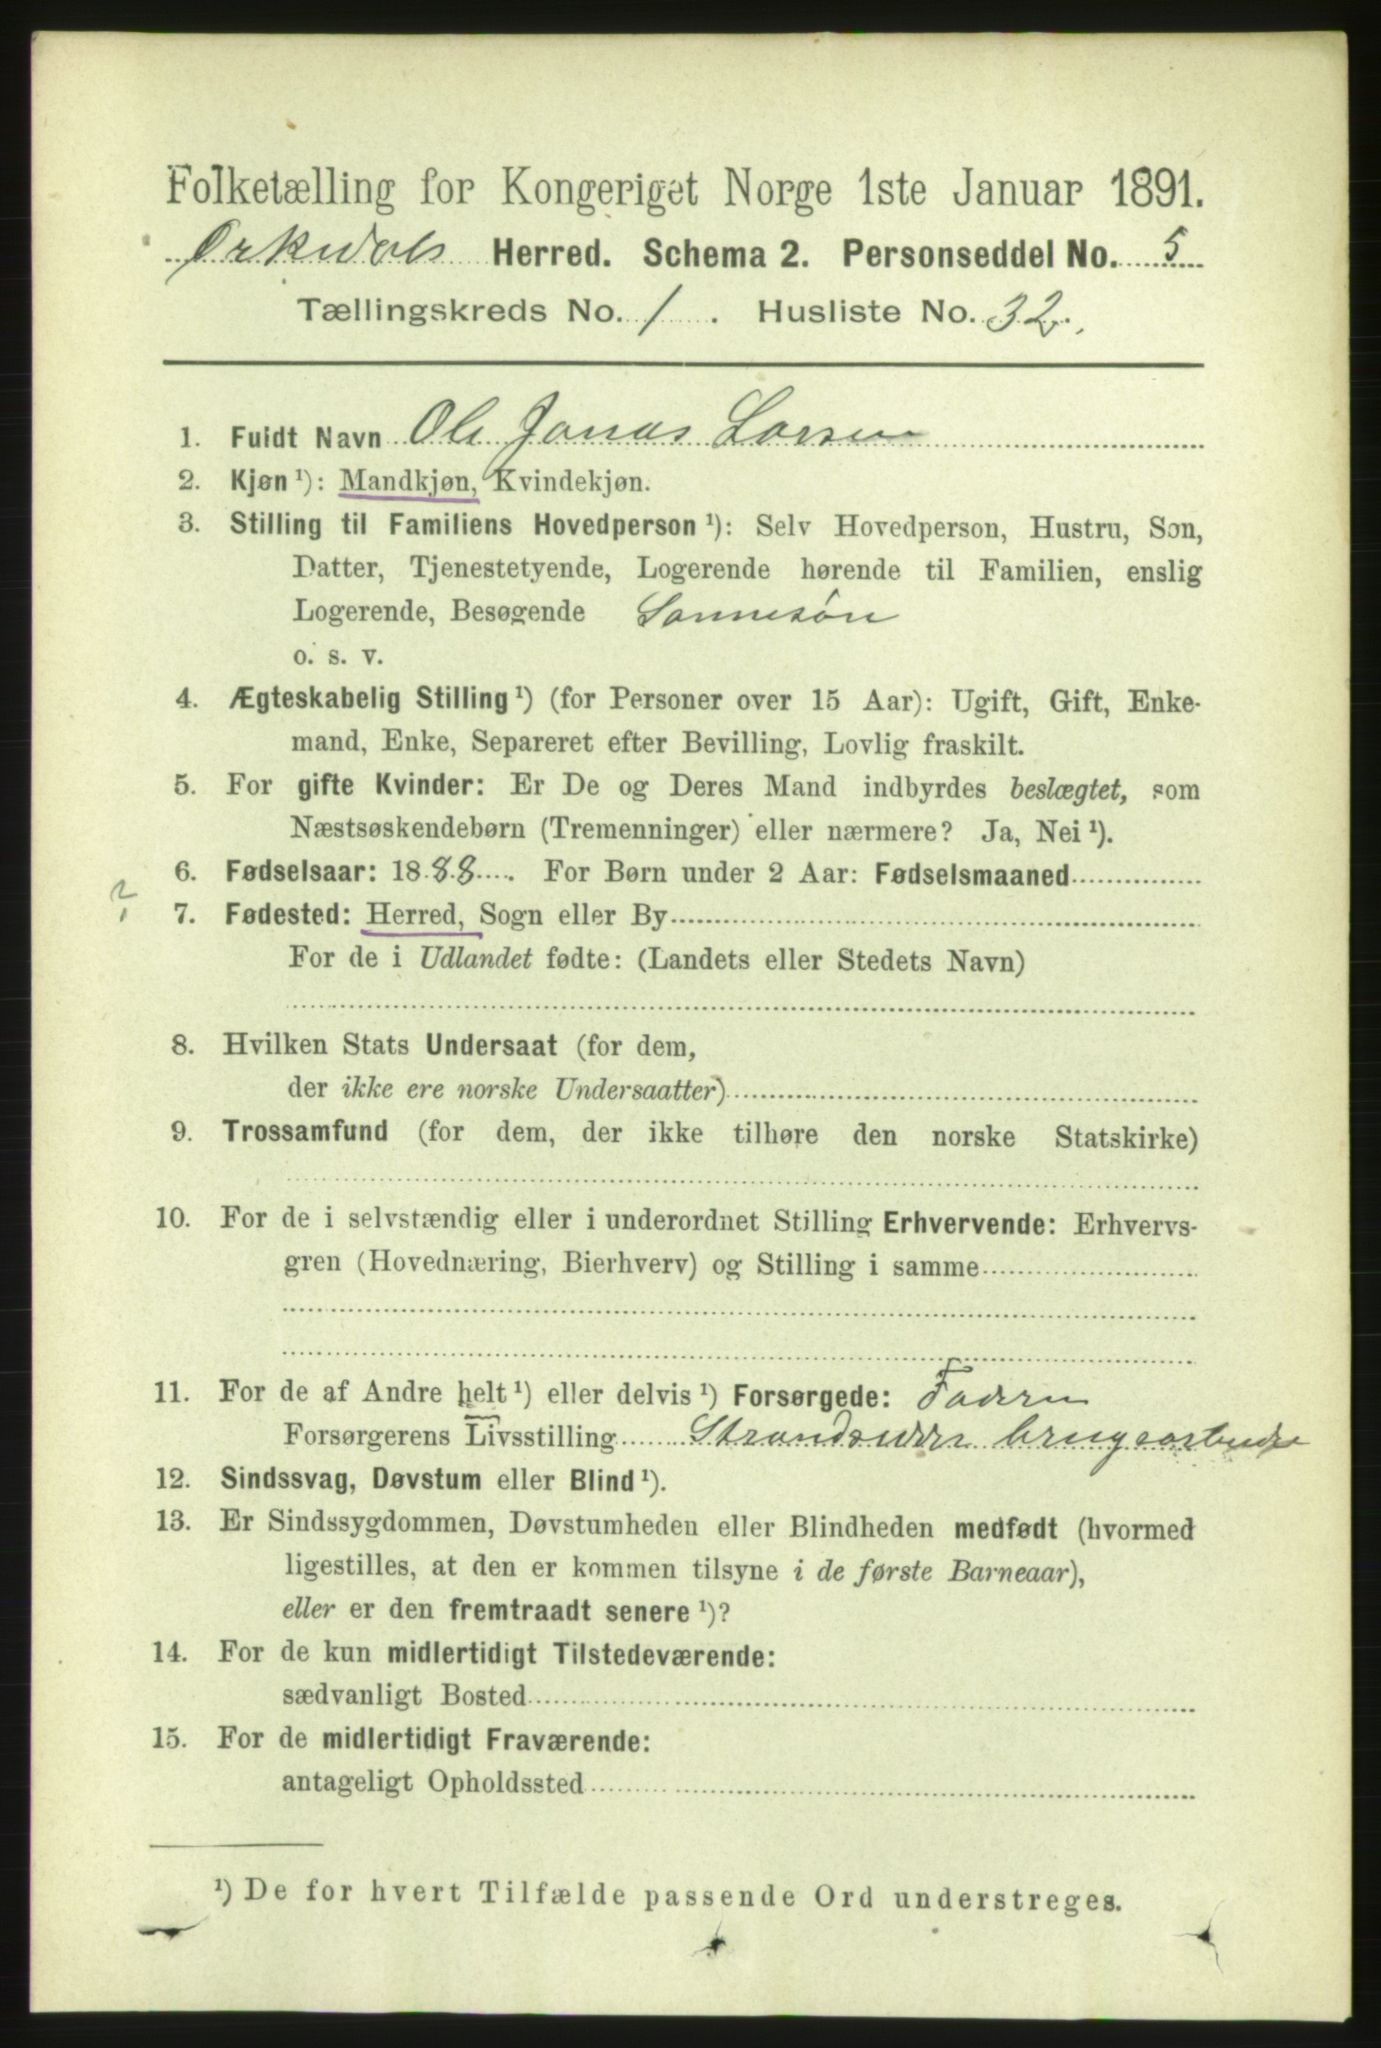 Folketælling for Kongeriget Norge 1ste Januar 1891.
Orkedals Herred. Schema 2. Personseddel No. 5
Tællingskreds No. 1. Husliste No. 32.
1. Fuldt Navn Ole Jonas Larsen
2. Kjøn ¹): Mandkjøn, Kvindekjøn.
3. Stilling til Familiens Hovedperson ¹): Selv Hovedperson, Hustru, Søn,
Datter, Tjenestetyende, Logerende hørende til Familien, enslig
Logerende, Besøgende Sønnesøn
o. s. v.
4. Ægteskabelig Stilling ¹) (for Personer over 15 Aar): Ugift, Gift, Enke-
mand, Enke, Separeret efter Bevilling, Lovlig fraskilt.
5. For gifte Kvinder: Er De og Deres Mand indbyrdes beslægtet, som
Næstsøskendebørn (Tremenninger) eller nærmere? Ja, Nei ¹).
6. Fødselsaar: 1888. For Børn under 2 Aar: Fødselsmaaned
?
7. Fødested: Herred, Sogn eller By
For de i Udlandet fødte: (Landets eller Stedets Navn)
8. Hvilken Stats Undersaat (for dem,
der ikke ere norske Undersaatter)
9. Trossamfund (for dem, der ikke tilhøre den norske Statskirke)
10. For de i selvstændig eller i underordnet Stilling Erhvervende: Erhvervs-
gren (Hovednæring, Bierhverv) og Stilling i samme
11. For de af Andre helt ¹) eller delvis ¹) Forsørgede: Faderen
Forsørgerens Livsstilling
12. Sindssvag, Døvstum eller Blind ¹).
13. Er Sindssygdommen, Døvstumheden eller Blindheden medfødt (hvormed
ligestilles, at den er kommen tilsyne i de første Barneaar),
eller er den fremtraadt senere ¹)?
14. For de kun midlertidigt Tilstedeværende:
sædvanligt Bosted
15. For de midlertidigt Fraværende:
antageligt Opholdssted
¹) De for hvert Tilfælde passende Ord understreges.